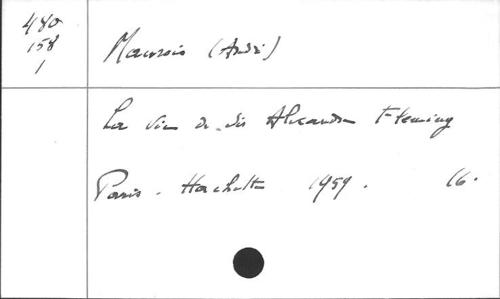 480
158
1
Maurois (André)
La vie de Sir Alexander Fleming
Paris. Hachette 1959. 16.